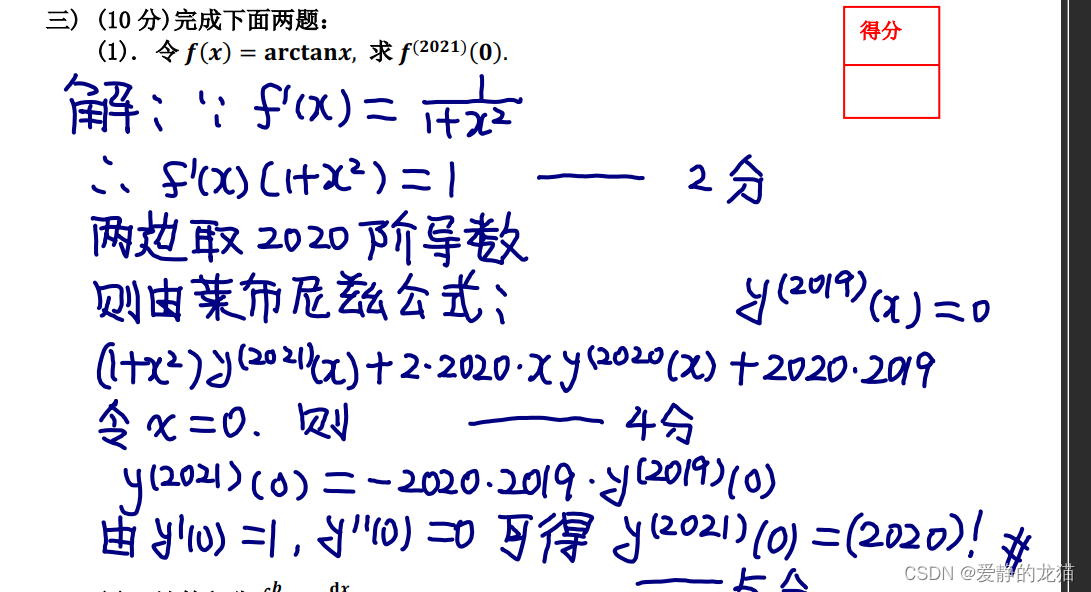 三）(10 分)完成下面两题：
得分
(1). 令 f(x) = arctanx, 求 f^(2021)(0).
解： ∵ f'(x) = 1/(1+x²)
∴ f'(x)(1+x²) = 1 —— 2分
两边取 2020 阶导数
则由莱布尼兹公式：
(1+x²)y^(2021)(x)+2·2020·x y^(2020(x)+2020·2019 y^(2019)(x)=0
令 x=0. 则 —— 4分
y^(2021)(0)=-2020·2019·y^(2019)(0)
由 y'(0)=1, y''(0)=0 可得 y^(2021)(0)=(2020)! #
—— 5分
CSDN @爱静的龙猫